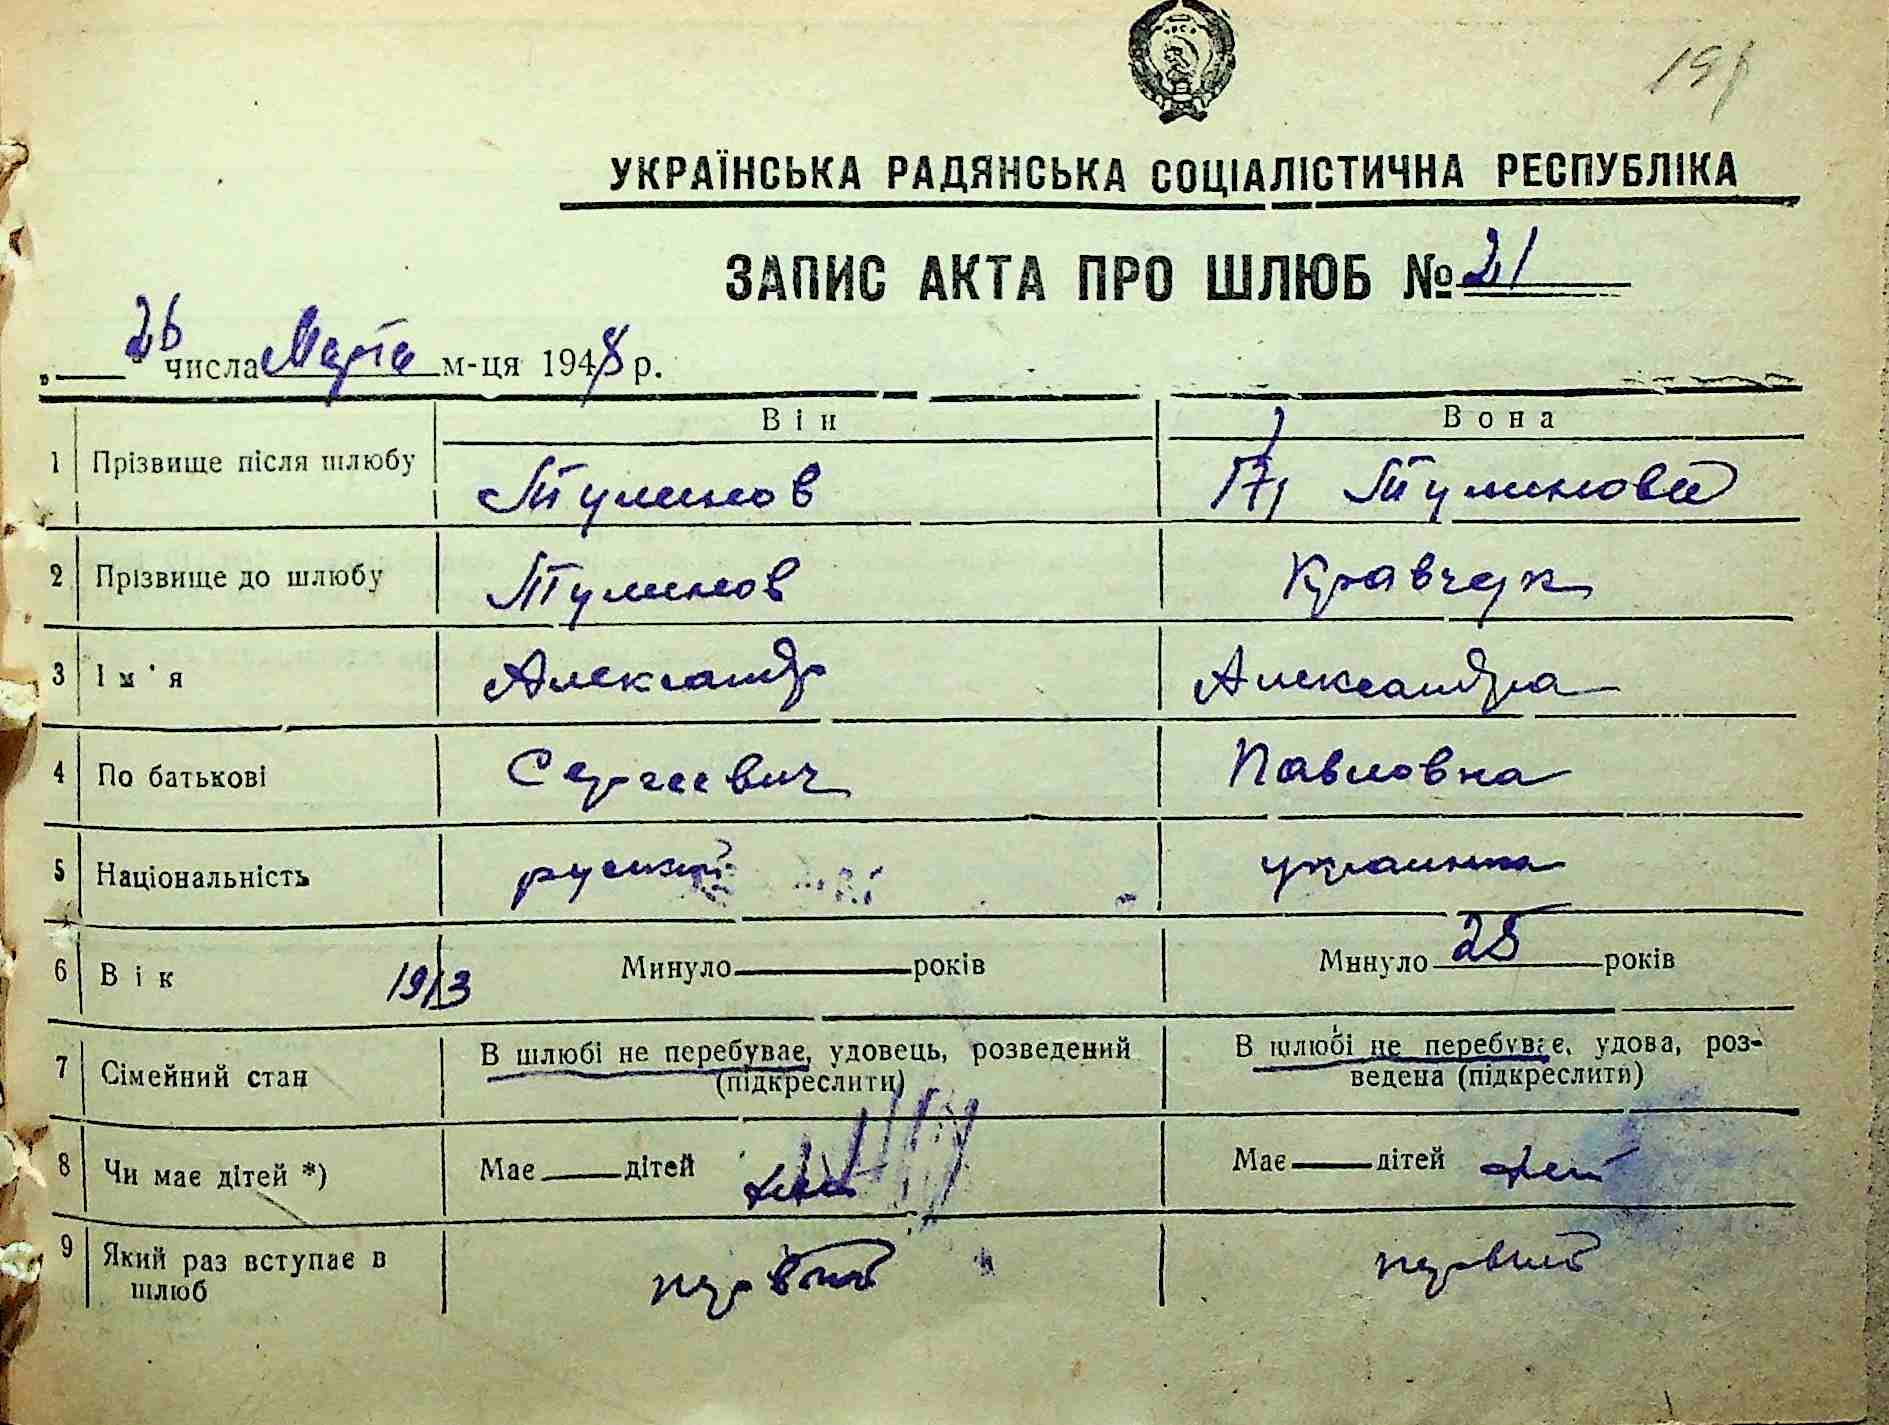 УКРАЇНСЬКА РАДЯНСЬКА СОЦІАЛІСТИЧНА РЕСПУБЛІКА
ЗАПИС АКТА ПРО ШЛЮБ № 21
" 26 числа Марта м-ця 1948 р.
Він Вона
1 Прізвище після шлюбу Тулинов Тулинова
2 Прізвище до шлюбу Тулинов Кравчук
3 Ім'я Александр Александра
4 По батькові Сергеевич Павловна
5 Національність руский украинка
6 Вік 1913 Минуло рокiв Минуло 25 років
7 Сімейний стан В шлюбі не перебуває, удовець, розведений (підкреслити) В шлюбі не перебуває, удова, роз-
ведена (підкреслити)
8 Чи має дітей *) Має дітей нет Має дітей нет
9 Який раз вступає в шлюб первый первый